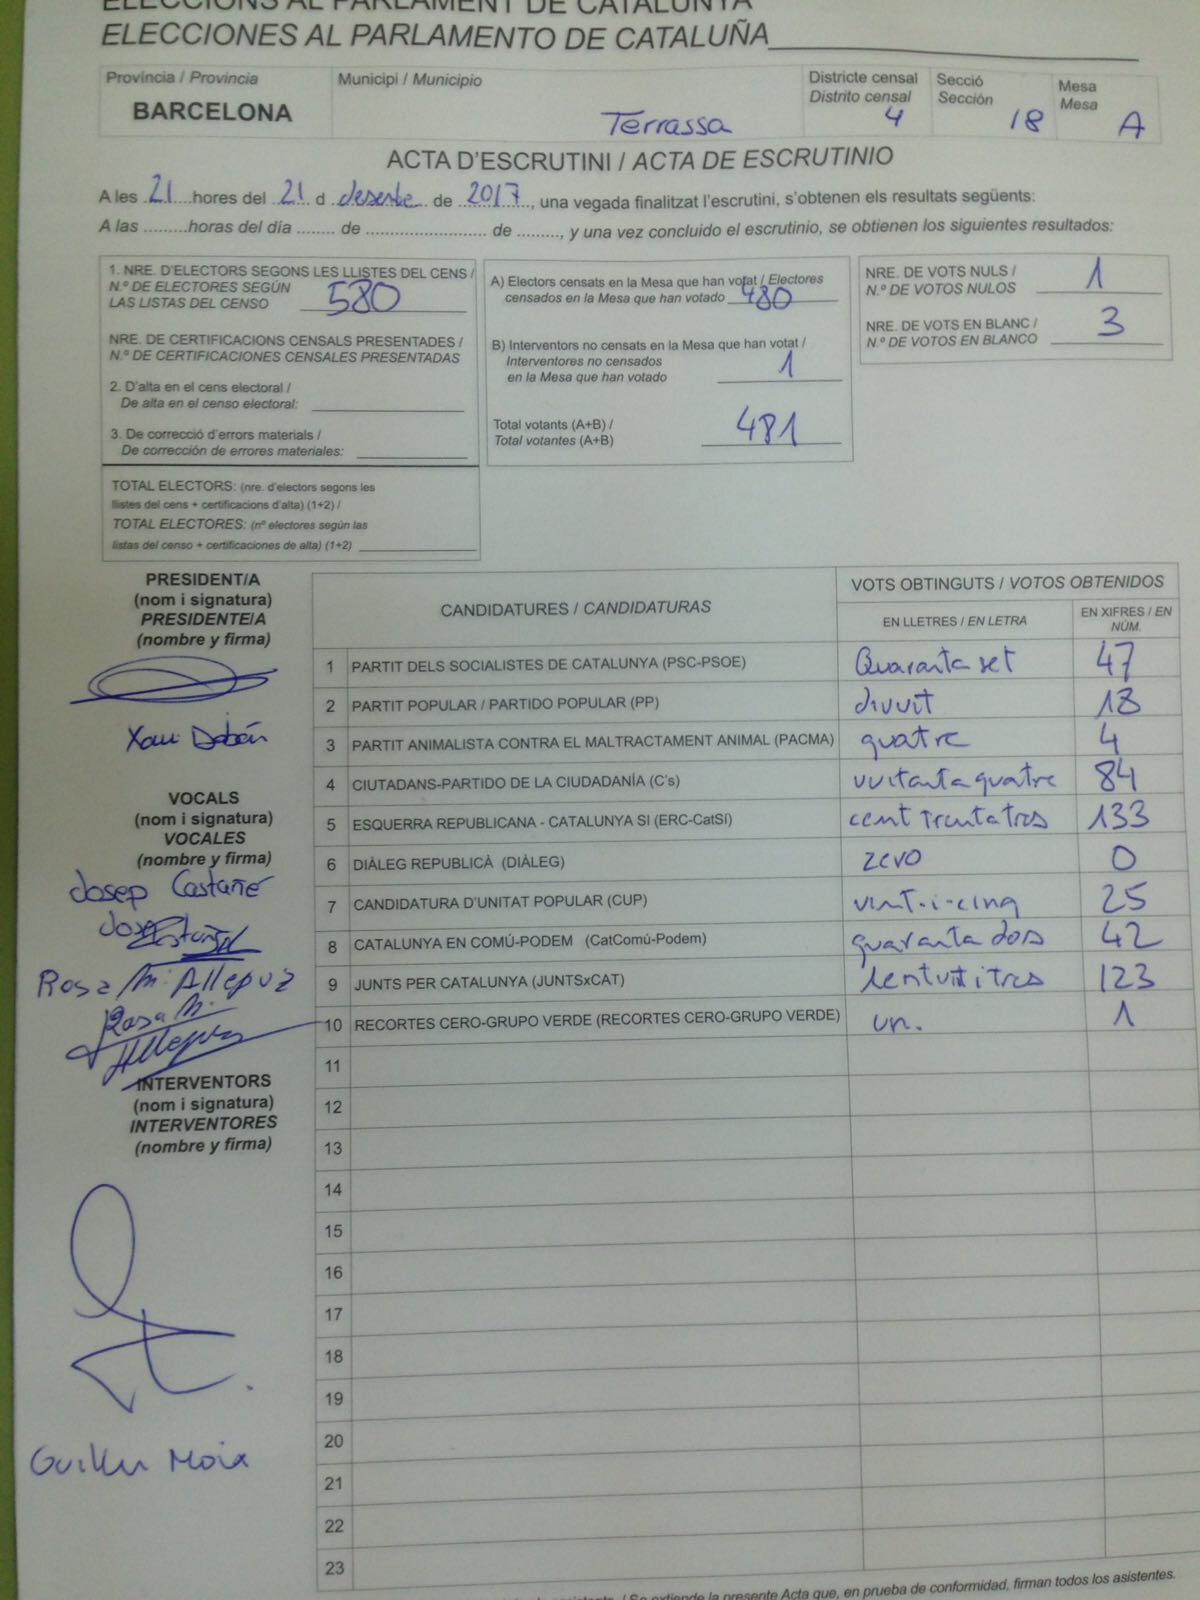 ELECCIONS AL PARLAMENT DE CATALUNYA
ELECCIONES AL PARLAMENTO DE CATALUÑA
Província / Provincia
BARCELONA
Municipi / Municipio
Terrassa
Districte censal
Distrito censal
4
Secció
Sección
18
Mesa
Mesa
A
ACTA D'ESCRUTINI / ACTA DE ESCRUTINIO
A les 21 hores del 21 d desembre de 2017, una vegada finalitzat l'escrutini, s'obtenen els resultats següents:
A las .........horas del día ........ de ........................ de ........., y una vez concluido el escrutinio, se obtienen los siguientes resultados:
1. NRE. D'ELECTORS SEGONS LES LLISTES DEL CENS /
N.º DE ELECTORES SEGÚN
LAS LISTAS DEL CENSO 580
NRE. DE CERTIFICACIONS CENSALS PRESENTADES /
N.º DE CERTIFICACIONES CENSALES PRESENTADAS
2. D'alta en el cens electoral /
De alta en el censo electoral:
3. De correcció d'errors materials /
De corrección de errores materiales:
TOTAL ELECTORS: (nre. d'electors segons les
llistes del cens + certificacions d'alta) (1+2) /
TOTAL ELECTORES: (nº electores según las
listas del censo + certificaciones de alta) (1+2)
A) Electors censats en la Mesa que han votat / Electores
censados en la Mesa que han votado 480
B) Interventors no censats en la Mesa que han votat /
Interventores no censados
en la Mesa que han votado 1
Total votants (A+B) /
Total votantes (A+B) 481
NRE. DE VOTS NULS /
N.º DE VOTOS NULOS 1
NRE. DE VOTS EN BLANC /
N.º DE VOTOS EN BLANCO 3
PRESIDENT/A
(nom i signatura)
PRESIDENTE/A
(nombre y firma)
Xavi
VOCALS
(nom i signatura)
VOCALES
(nombre y firma)
Josep Castañé
Josep Castañé
Rosa M. Allepuz
Rosa M.
Allepuz
INTERVENTORS
(nom i signatura)
INTERVENTORES
(nombre y firma)
Moix
CANDIDATURES / CANDIDATURAS
VOTS OBTINGUTS / VOTOS OBTENIDOS
EN LLETRES / EN LETRA
EN XIFRES / EN NÚM.
1 PARTIT DELS SOCIALISTES DE CATALUNYA (PSC-PSOE) Quaranta set 47
2 PARTIT POPULAR / PARTIDO POPULAR (PP) divuit 18
3 PARTIT ANIMALISTA CONTRA EL MALTRACTAMENT ANIMAL (PACMA) quatre 4
4 CIUTADANS-PARTIDO DE LA CIUDADANÍA (C's) vuitanta quatre 84
5 ESQUERRA REPUBLICANA - CATALUNYA SI (ERC-CatSí) cent trentatres 133
6 DIÀLEG REPUBLICÀ (DIÀLEG) zero 0
7 CANDIDATURA D'UNITAT POPULAR (CUP) vint-i-cinq 25
8 CATALUNYA EN COMÚ-PODEM (CatComú-Podem) quaranta dos 42
9 JUNTS PER CATALUNYA (JUNTSxCAT) 123
10 RECORTES CERO-GRUPO VERDE (RECORTES CERO-GRUPO VERDE) un. 1
11
12
13
14
15
16
17
18
19
20
21
22
23
/ Se extiende la presente Acta que, en prueba de conformidad, firman todos los asistentes.